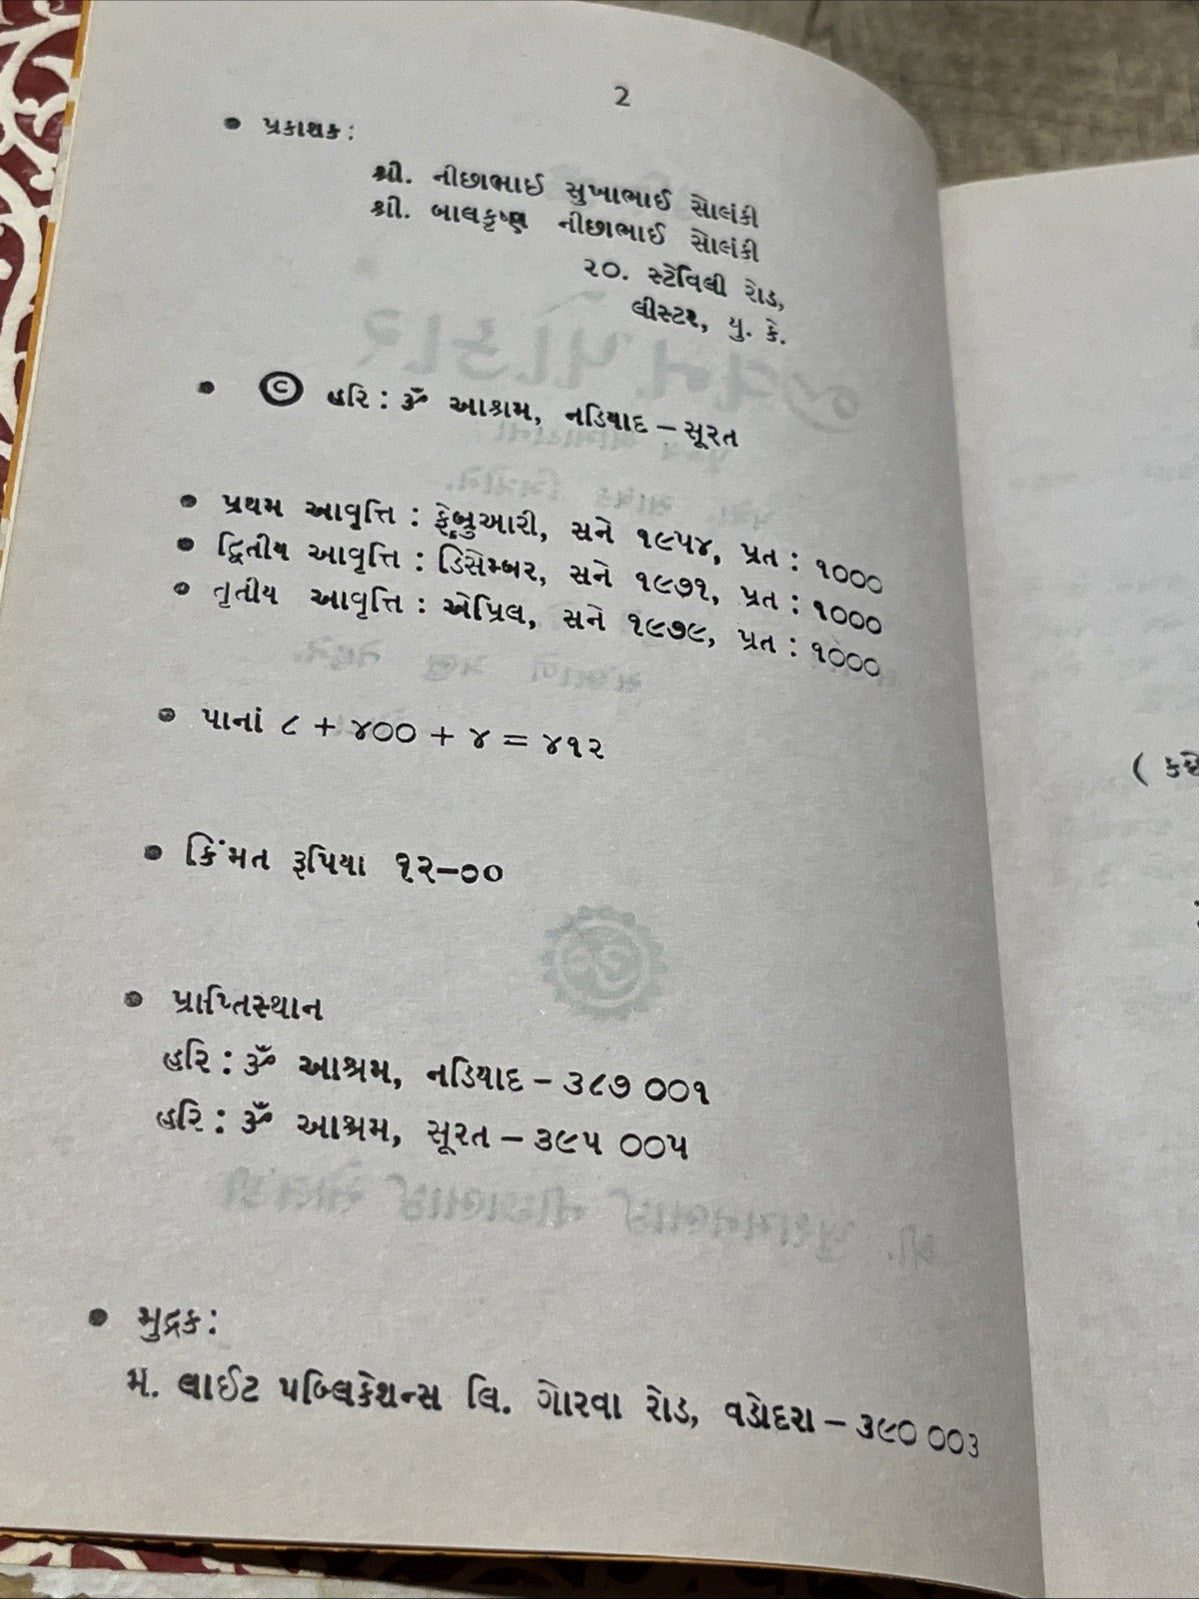 2
• પ્રકાશક :
શ્રી. નીછાભાઈ સુખાભાઈ સોલંકી
શ્રી. બાલકૃષ્ણ નીછાભાઈ સોલંકી
૨૦. સ્ટેવિલી રોડ,
લીસ્ટર, યુ. કે.
• © હરિ : ૐ આશ્રમ, નડિયાદ – સૂરત
• પ્રથમ આવૃત્તિ : ફેબ્રુઆરી, સને ૧૯૫૪, પ્રત : ૧૦૦૦
• દ્વિતીય આવૃત્તિ : ડિસેમ્બર, સને ૧૯૭૧, પ્રત : ૧૦૦૦
• તૃતીય આવૃત્તિ : એપ્રિલ, સને ૧૯૭૯, પ્રત : ૧૦૦૦
• પાનાં ૮ + ૪૦૦ + ૪ = ૪૧૨
• કિંમત રૂપિયા ૧૨–૦૦
• પ્રાપ્તિસ્થાન
હરિ : ૐ આશ્રમ, નડિયાદ – ૩૮૭ ૦૦૧
હરિ : ૐ આશ્રમ, સૂરત – ૩૯૫ ૦૦૫
• મુદ્રક :
મ. લાઈટ પબ્લિકેશન્સ લિ. ગોરવા રોડ, વડોદરા – ૩૯૦ ૦૦૩